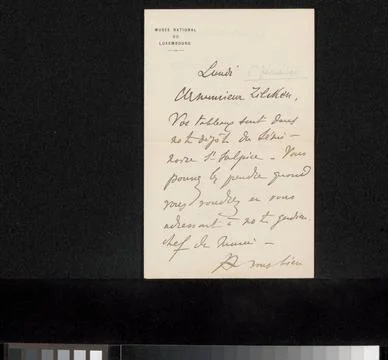 MUSÉE NATIONAL
DU
LUXEMBOURG
Lundi
Cher monsieur Zilcken,
Vos tableaux sont dans
notre dépôt du Sémi-
naire St Sulpice - Vous
pouvez les prendre quand
vous voudrez en vous
adressant à notre gardien
chef du Musée -
A vous bien